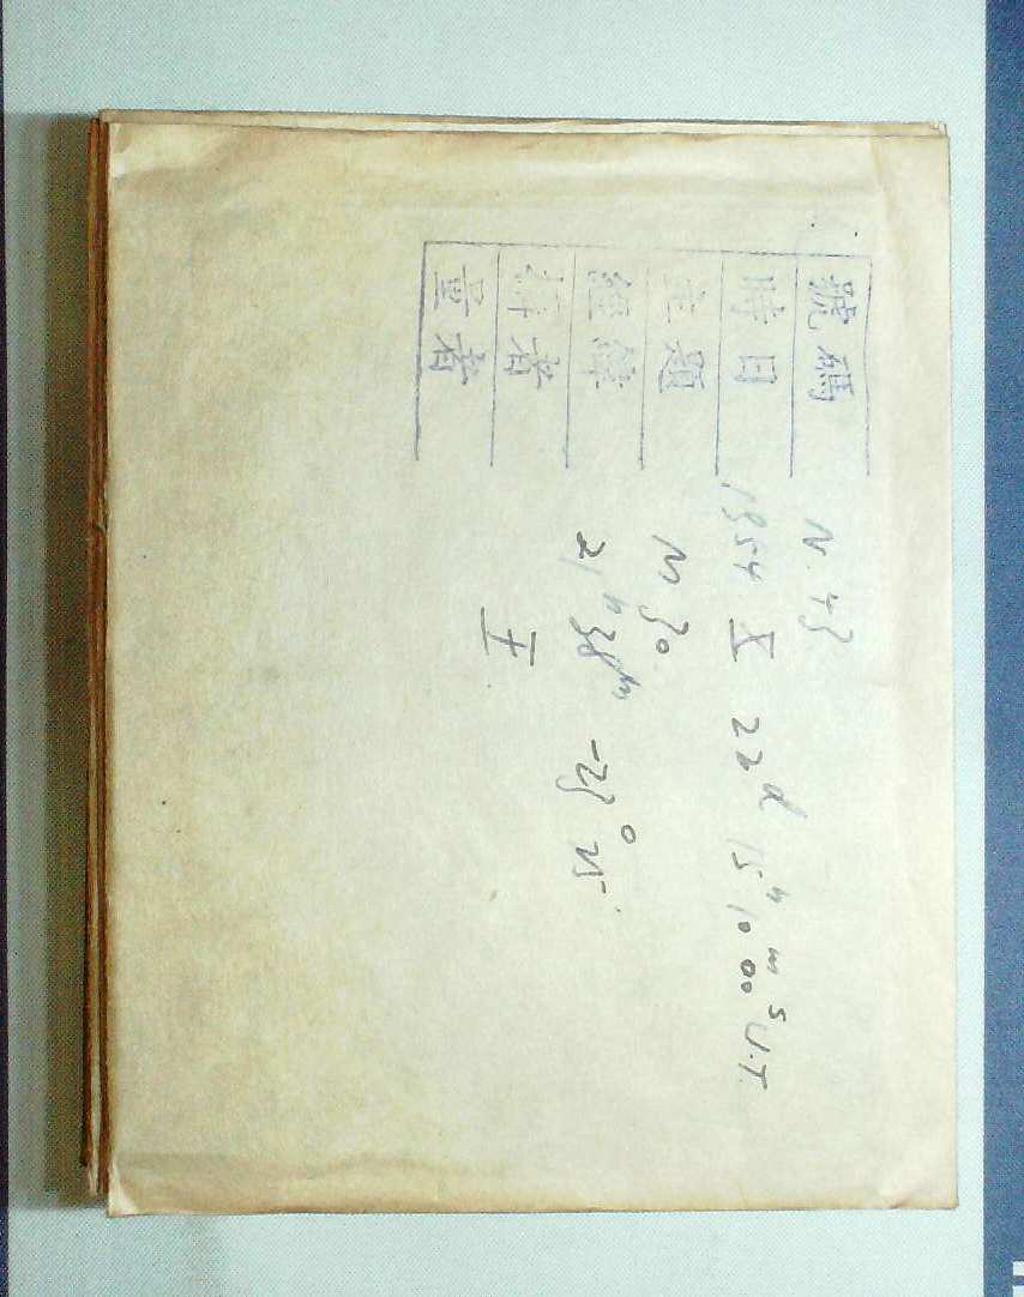 號碼 N. 43
時日 1954 X 22d 15h 10m 00s U.T.
題 M 30
經緯 21h 38m -23° 25
者 王
量者